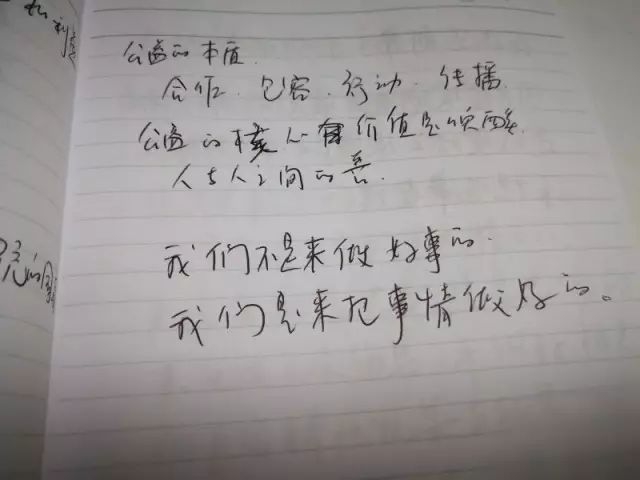 公益的本质
合作、包容、行动、传播
公益的核心价值是唤醒
人与人之间的善.
我们不是来做好事的.
我们是来把事情做好的。